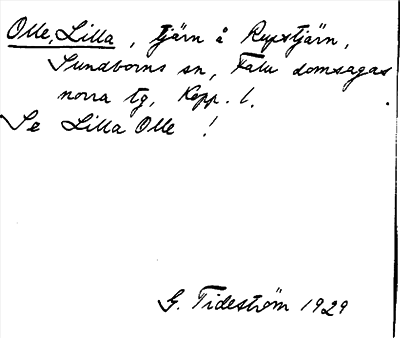 Olle, Lilla, tjärn å Repstjärn,
Sundborns sn, Falu domsagas
norra tg, Kopp. l.
Se Lilla Olle!
G. Tideström 1929